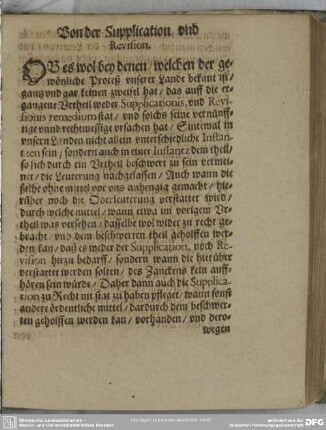 Von der Supplication, vnd
Revision.
OB es wol bey denen / welchen der ge-
wöhnliche Proceß vnserer Lande bekant ist /
gantz vnd gar keinen zweifel hat / das auff die er-
gangene Vrtheil weder Supplicationis, vnd Revi-
sionis remedium stat / vnd solchs seine vernünff-
tige vnnd rechtmessige vrsachen hat / Sintemal in
vnsern Landen nicht allein vnterschiedliche Instan-
tzen sein / sondern auch in einer Instantz dem theil /
so sich durch ein Vrtheil beschwert zu sein vermei-
net / die Leuterung nachgelassen / Auch wann die
selbe ohne mittel vor vns anhengig gemacht / hie-
rüber noch die Oberleuterung verstattet wird /
durch welche mittel / wann etwa im vorigem Vr-
theil was versehen / dasselbe wol wider zu recht ge-
bracht / vnd dem beschwerten theil geholffen wer-
den kan / daß es weder der Supplication, noch Re-
vision hirzu bedarff / sondern wann die hierüber
verstattet werden solten / des Zanckens kein auff-
hören sein würde / Daher dann auch die Supplica-
tion zu Recht nit stat zu haben pfleget / wann sonst
andere ordentliche mittel / dardurch dem beschwer-
ten geholffen werden kan / vorhanden / vnd dero-
wegen